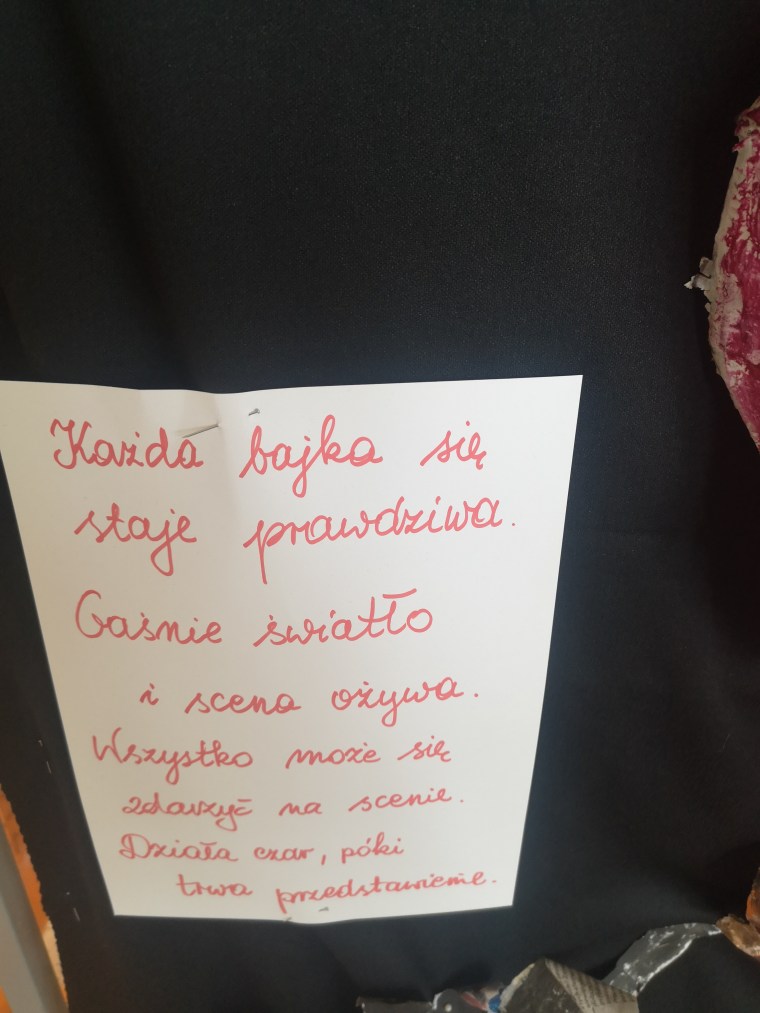 Każda bajka się
staje prawdziwa.
Gaśnie światło
i scena ożywa.
Wszystko może się
zdarzyć na scenie.
Działa czar, póki
trwa przedstawienie.